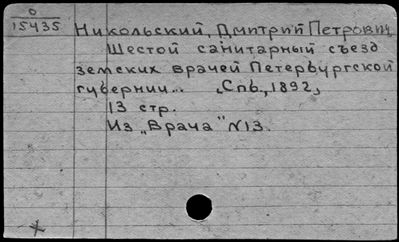 0
15435
Никольский, Дмитрий Петрович
Шестой санитарный съезд
земских врачей Петербургской
губернии... Спб., 1892,
13 стр.
Из „Врача" N13.